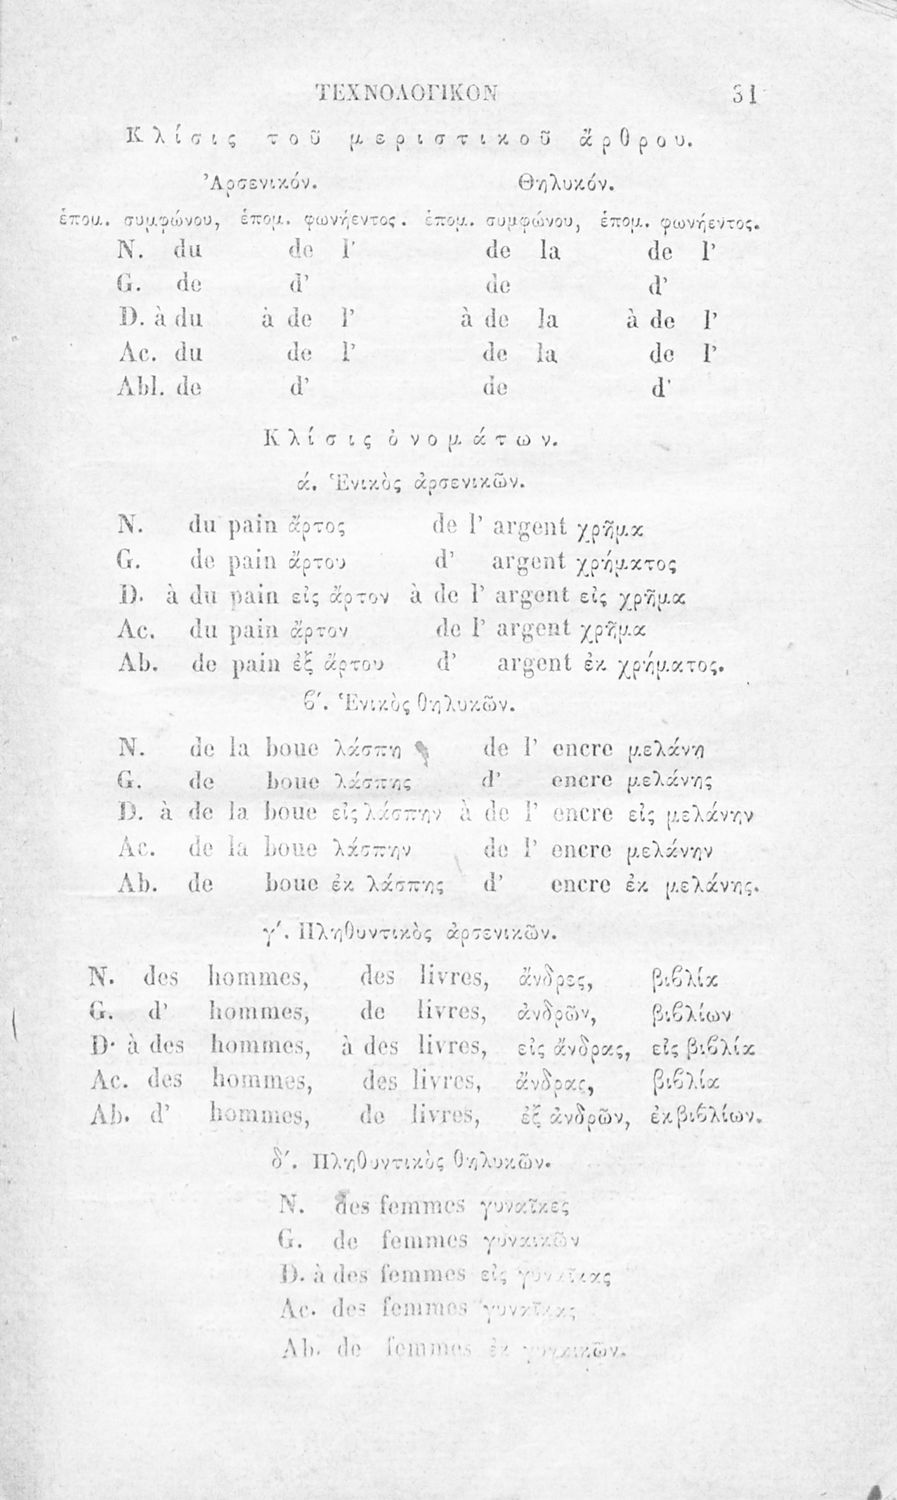 ΤΕΧΝΟΛΟΓΙΚΟΝ 31
Κλίσις τοῦ μεριστικοῦ ἄρθρου.
Ἀρσενικόν. Θηλυκόν.
ἑπομ. συμφώνου, ἑπομ. φωνήεντος. ἑπομ. συμφώνου, ἑπομ. φωνήεντος.
N. du de l' de la de l'
G. de d' de d'
D. à du à de l' à de la à de l'
Ac. du de l' de la de l'
Abl. de d' de d'
Κλίσις ὀνομάτων.
ά. Ἑνικὸς ἀρσενικῶν.
N. du pain ἄρτος de l' argent χρῆμα
G. de pain ἄρτου d' argent χρήματος
D. à du pain εἰς ἄρτον à de l' argent εἰς χρῆμα
Ac. du pain ἄρτον de l' argent χρῆμα
Ab. de pain ἐξ ἄρτου d' argent ἐκ χρήματος.
ϐ'. Ἑνικὸς θηλυκῶν.
N. de la boue λάσπη de l' encre μελάνη
G. de boue λάσπης d' encre μελάνης
D. à de la boue εἰς λάσπην à de l' encre εἰς μελάνην
Ac. de la boue λάσπην de l' encre μελάνην
Ab. de boue ἐκ λάσπης d' encre ἐκ μελάνης.
γ'. Πληθυντικὸς ἀρσενικῶν.
N. des hommes, des livres, ἄνδρες, βιϐλία
G. d' hommes, de livres, ἀνδρῶν, βιϐλίων
D· à des hommes, à des livres, εἰς ἄνδρας, εἰς βιϐλία
Ac. des hommes, des livres, ἄνδρας, βιϐλία
Ab. d' hommes, de livres, ἐξ ἀνδρῶν, ἐκ βιϐλίων.
δ'. Πληθυντικὸς θηλυκῶν.
N. des femmes γυναῖκες
G. de femmes γυναικῶν
D. à des femmes εἰς γυναῖκας
Ac. des femmes γυναῖκας
Ab. de femmes ἐκ γυναικῶν.